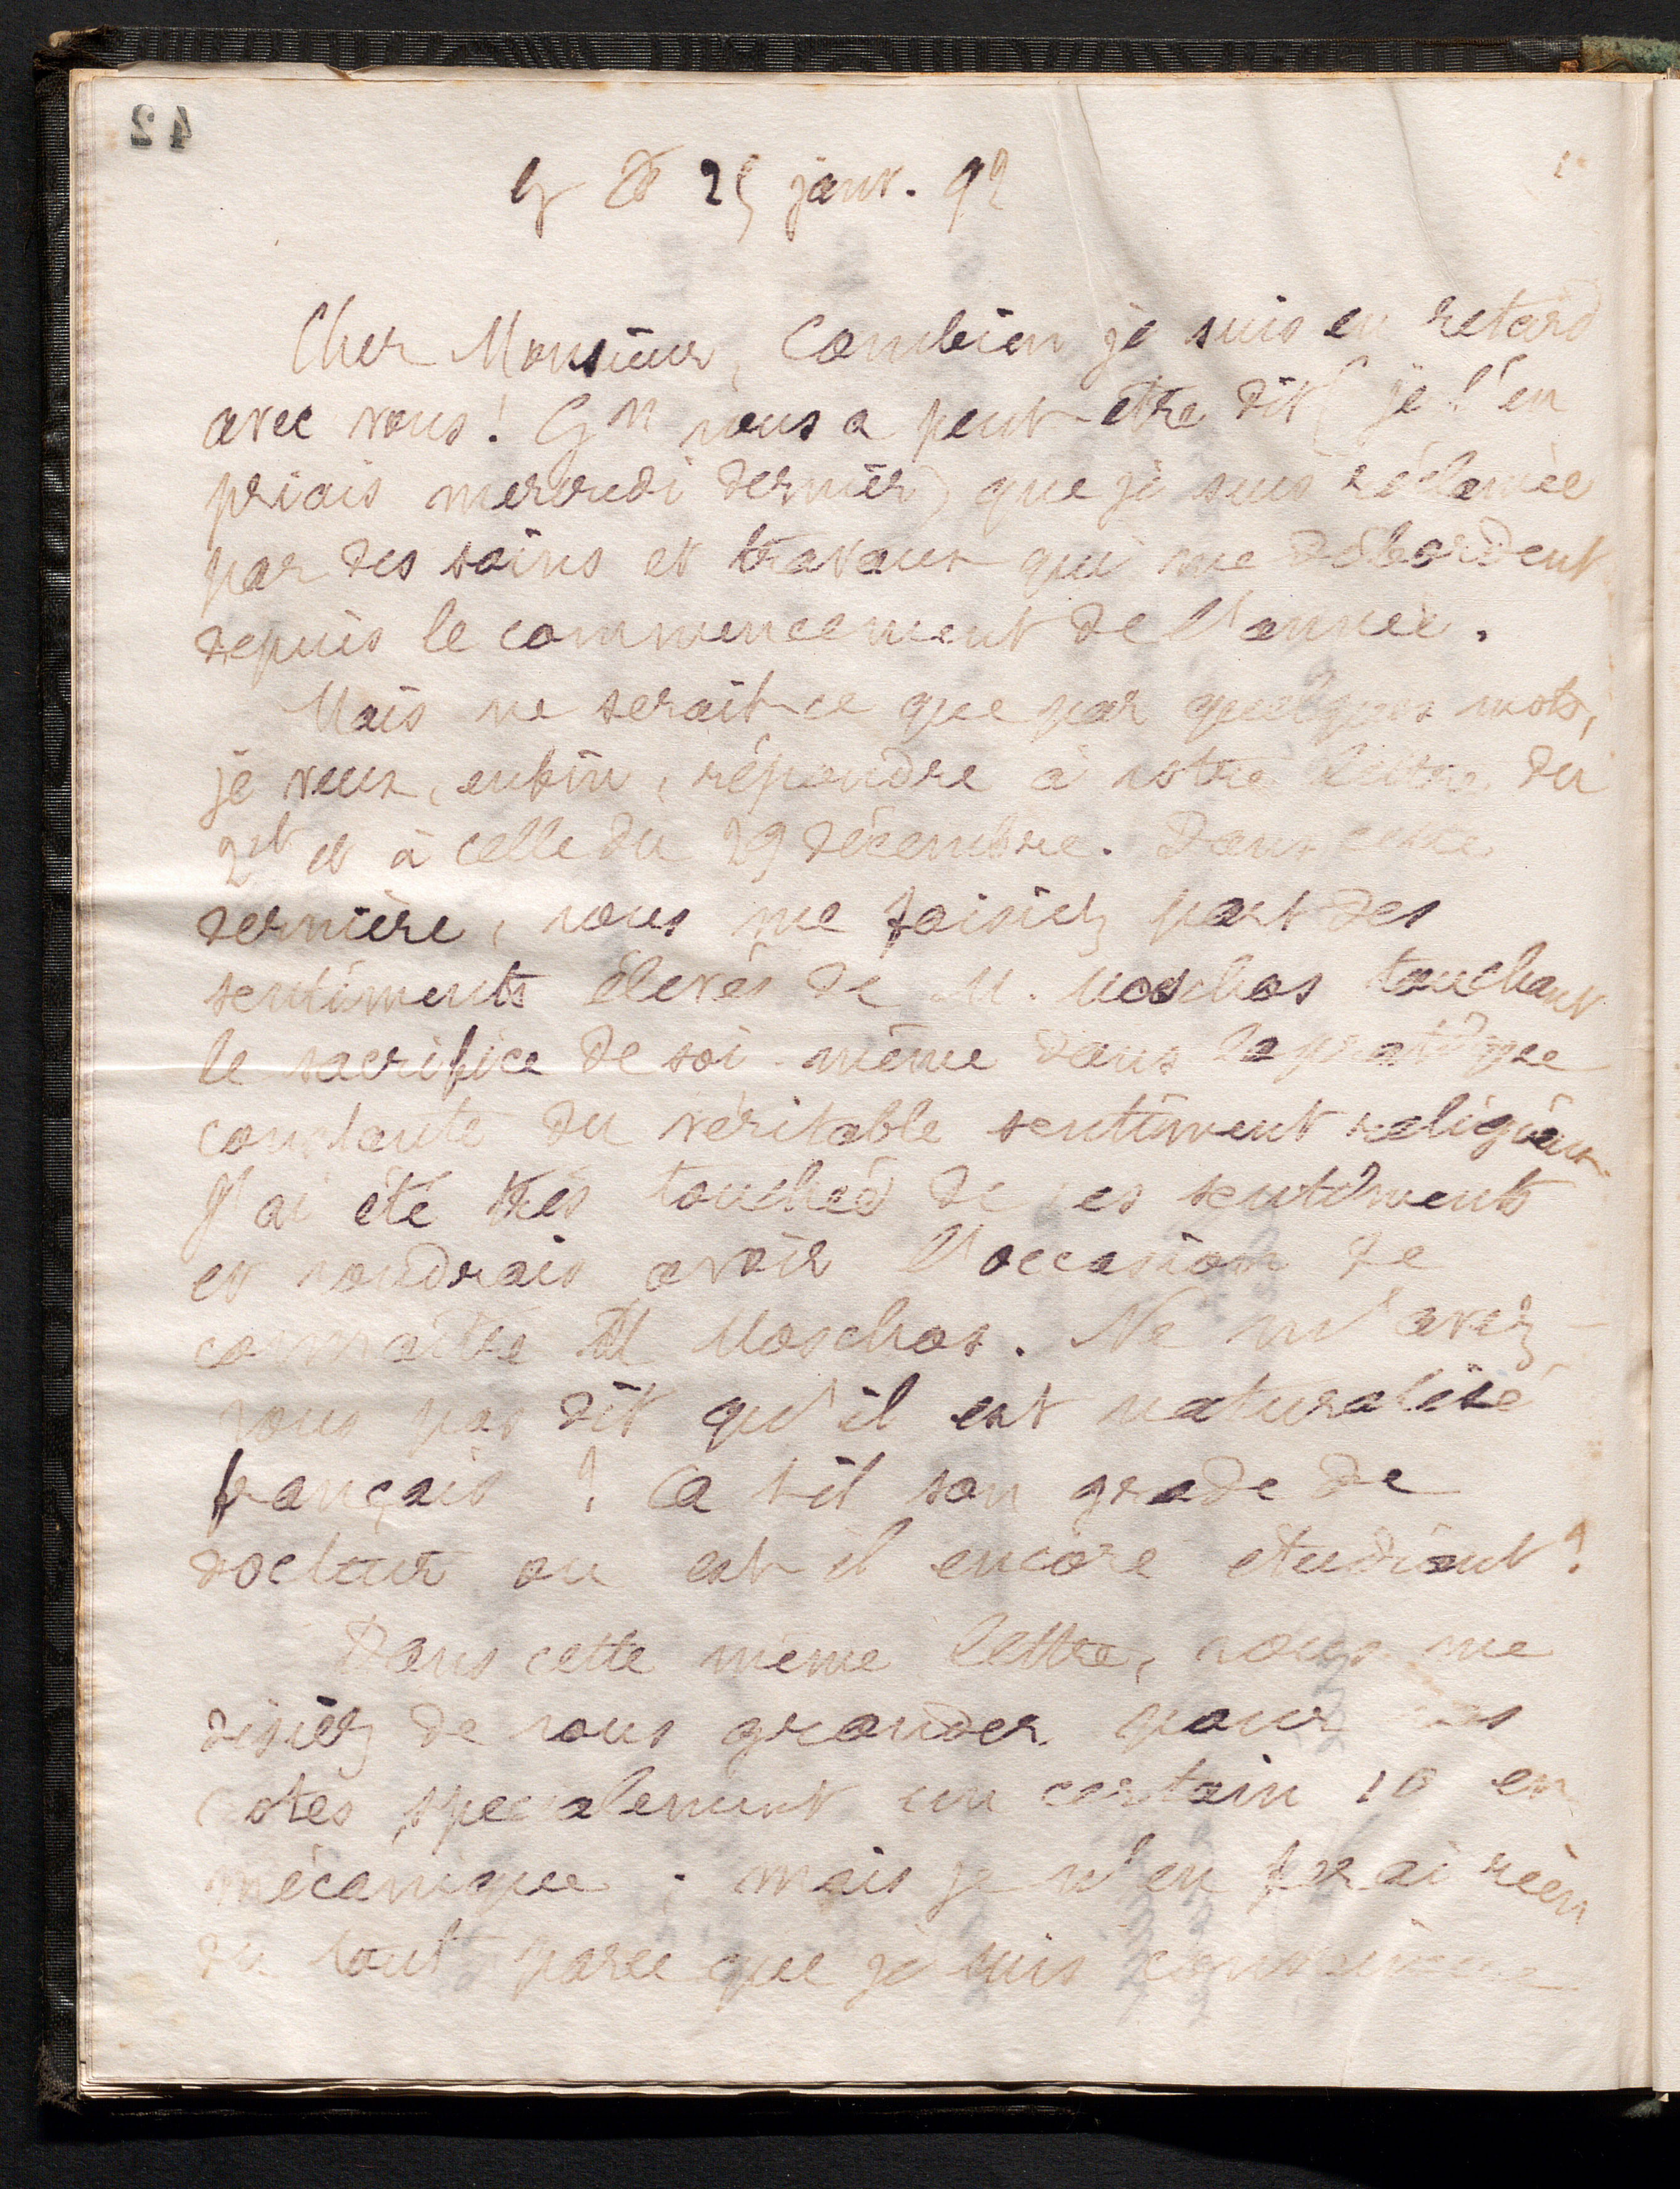 42
25 janv. 92
Cher Monsieur, Combien je suis en retard
avec vous! Gn vous a peut-être dit (je l'en
priais mercredi dernier) que je suis réclamée
par des soins et travaux qui me débordent
depuis le commencement de l'année.
Mais ne serait-ce que par quelques mots,
je veux, enfin, répondre à votre lettre du
21 et à celle du 29 décembre. Dans cette
dernière, vous me faisiez part des
sentiments élevés de M. Moschos touchant
le sacrifice de soi-même dans la pratique
constante du véritable sentiment religieux.
J'ai été très touchée de ces sentiments
et voudrais avoir l'occasion de
connaître M Moschos. Ne m'avez-
vous pas dit qu'il est naturalisé
français? A t-il son grade de
docteur ou est-il encore étudiant?
Dans cette même lettre, vous me
disiez de vous gronder pour vos
cotes, specialement un certain 10 en
mécanique; mais je n'en ferai rien
du tout parce que je suis